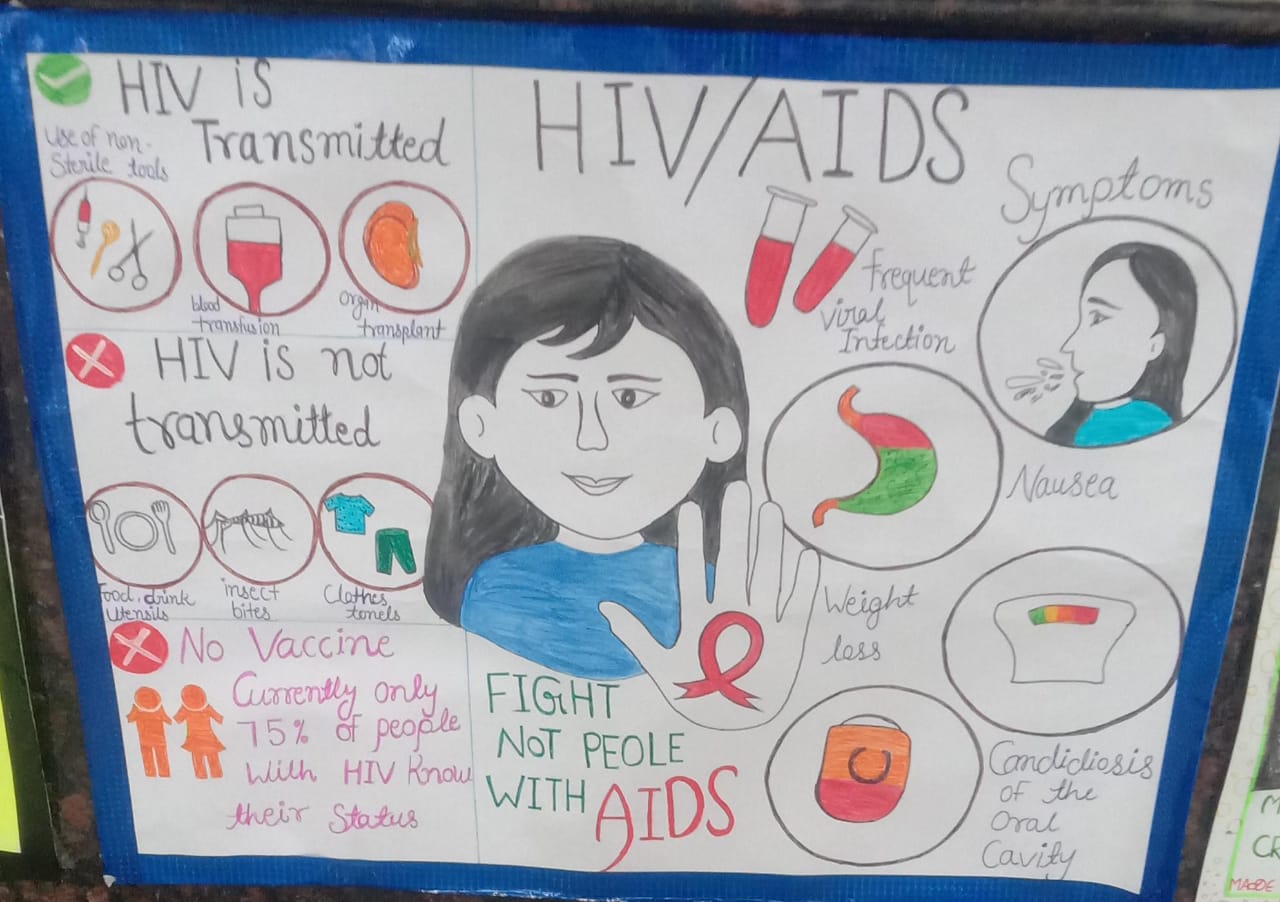 HIV is
Transmitted
Use of non-
Sterile tools
blood
transfusion
Organ
transplant
HIV is not
transmitted
Food, drink
Utensils
insect
bites
Clothes,
tonels
No Vaccine
Currently only
75% of people
With HIV Know
their Status
HIV/AIDS
FIGHT
NOT PEOLE
WITH AIDS
Symptoms
Frequent
Viral
Infection
Nausea
Weight
loss
Candidiosis
of the
Oral
Cavity
MADE